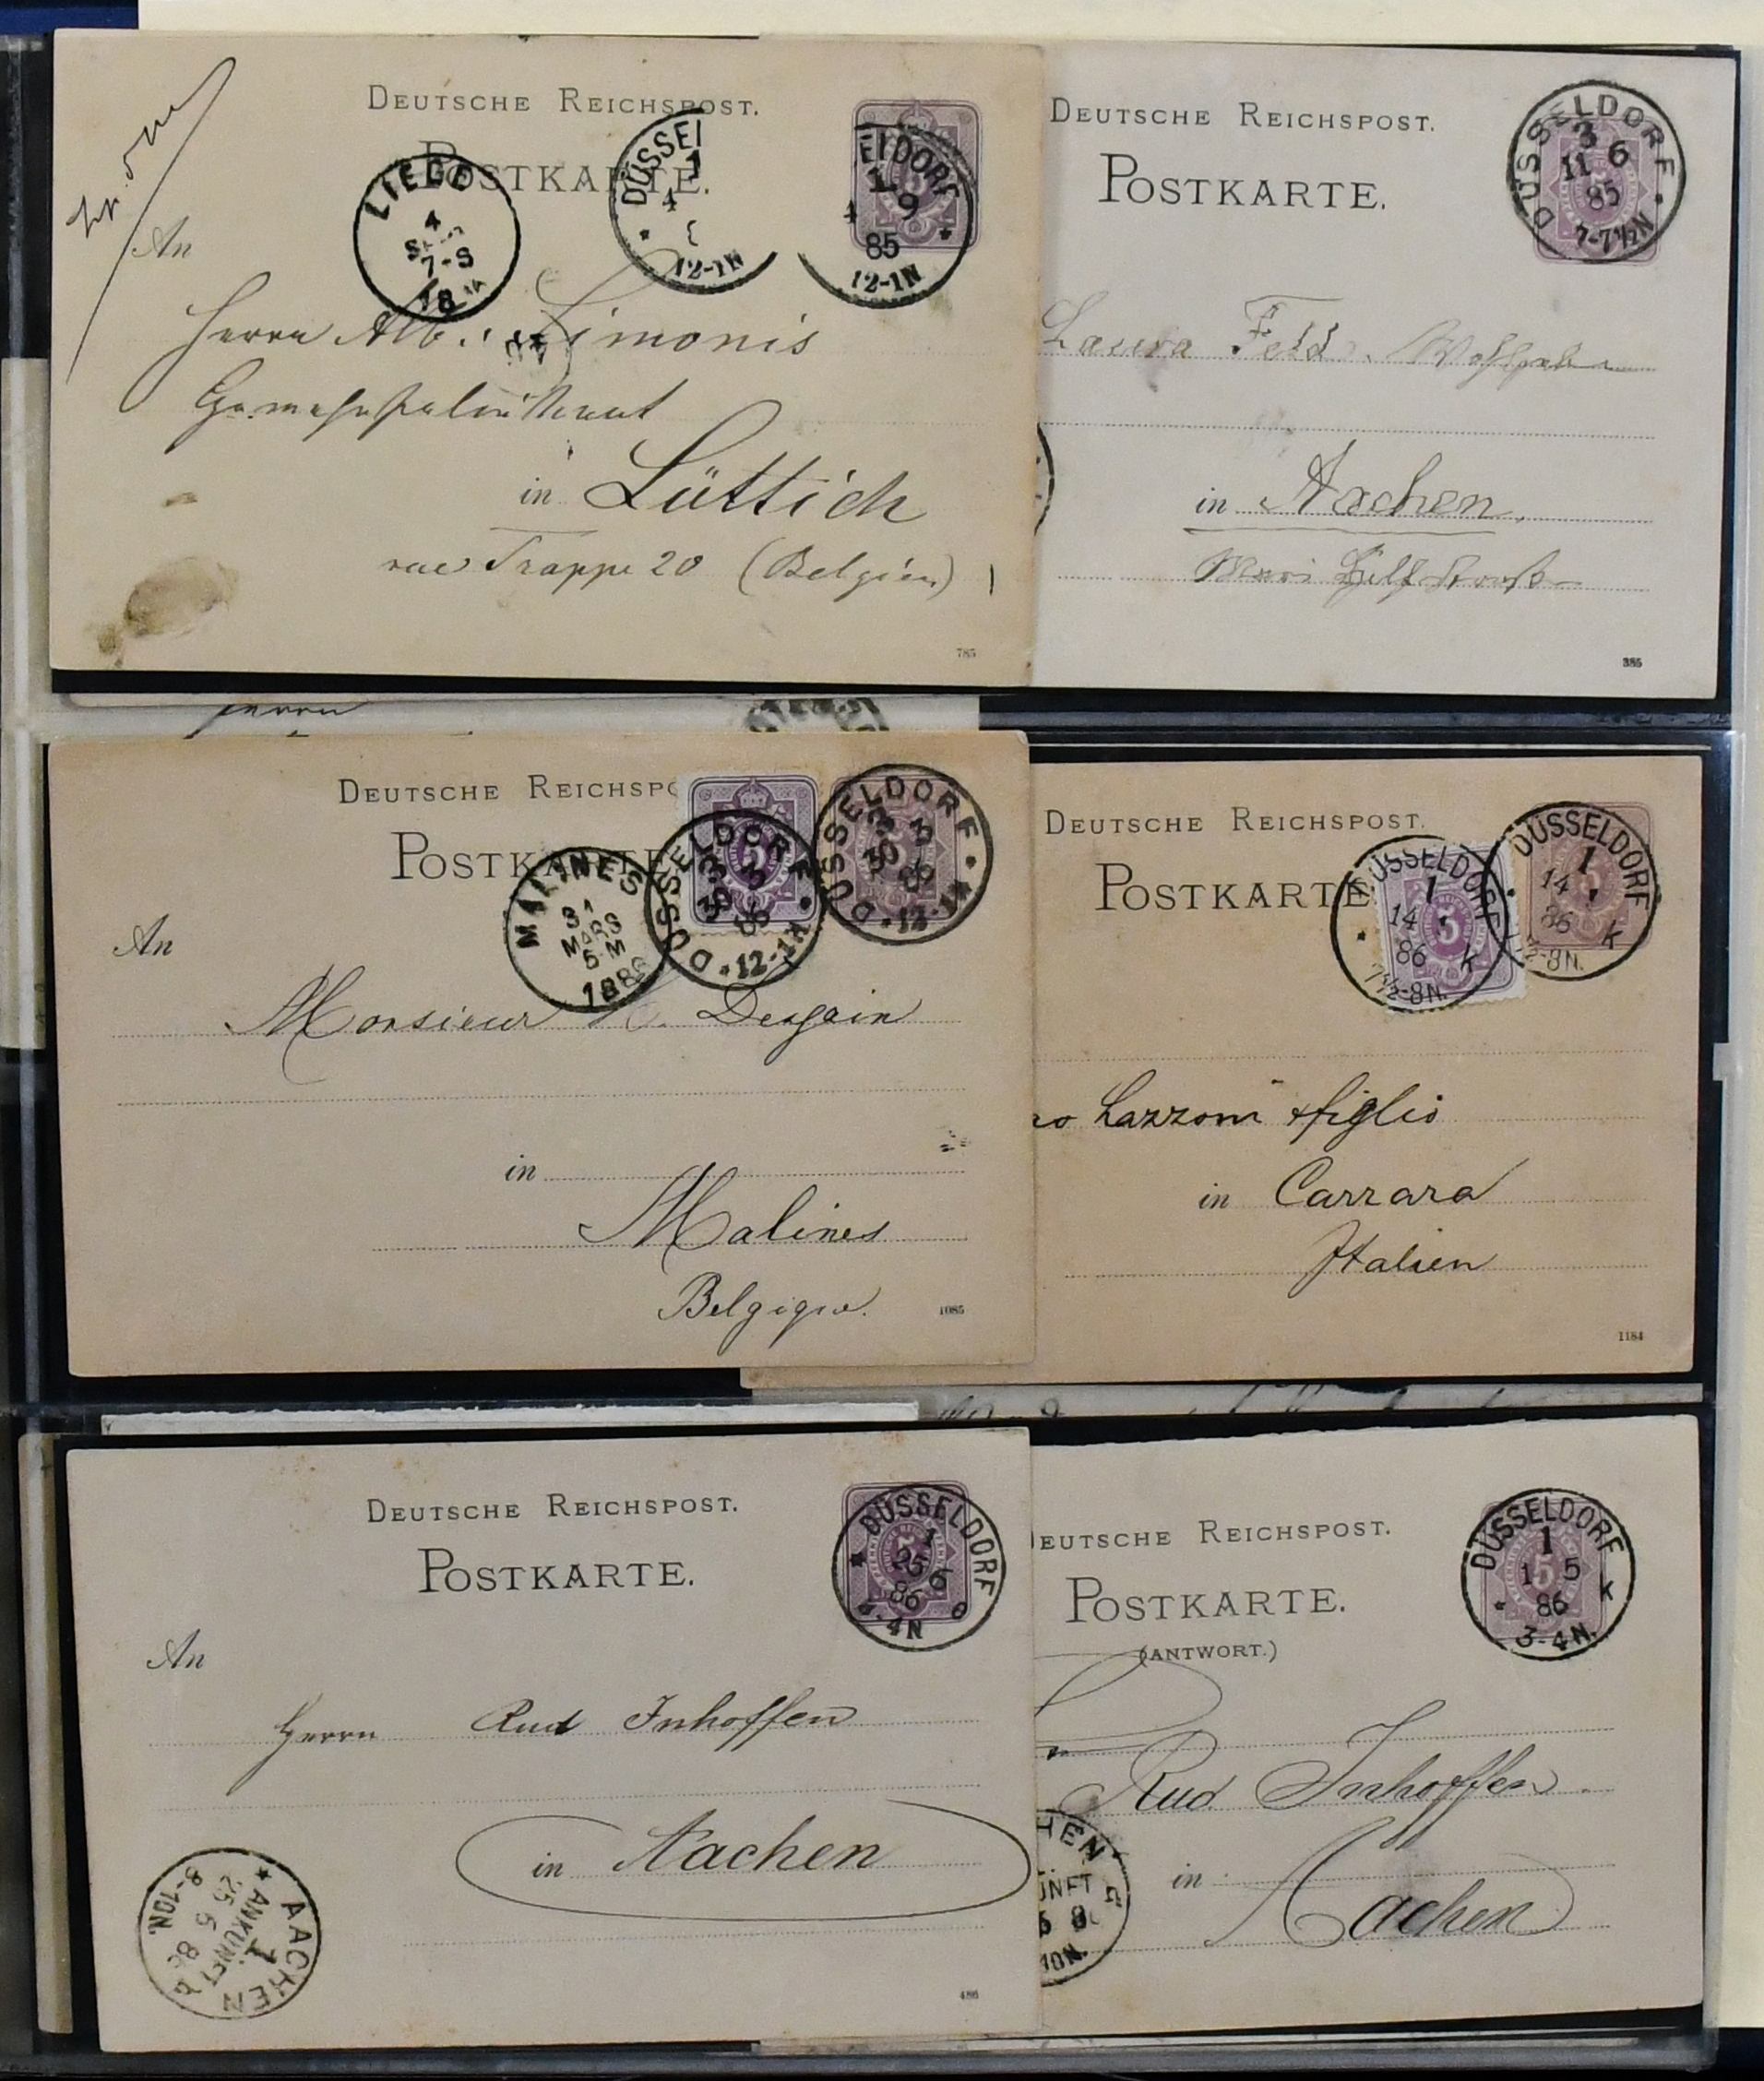 DEUTSCHE REICHSPOST.
POSTKARTE.
LIEGE
4
7-S
18
DÜSSEL
1
4
12-1N
ELDORF
1
4 9
85
12-1N
5
An
Herrn Alb. Simonis
in Lüttich
rue Trappe 20 (Belgien)
785
DEUTSCHE REICHSPOST.
POSTKARTE.
DÜSSELDORF
3
11 6
85
7-7½N
Laura Feld.
in Aachen.
385
Herrn
DEUTSCHE REICHSPO
POSTKARTE
MALINES
31
MARS
5-M
1886
DÜSSELDORF
3
30 3
86
12-1N
5
DÜSSELDORF
3
30 3
86
12-1N
An
Monsieur Dessain
in
Malines
Belgique.
1085
DEUTSCHE REICHSPOST.
POSTKARTE
DÜSSELDORF
1
14
86 K
7½-8N.
5
DÜSSELDORF
1
14
86 K
½-8N.
Lazzoni & figlio
in Carrara
Italien
1184
DEUTSCHE REICHSPOST.
POSTKARTE.
DÜSSELDORF
1
25
86
-4N
An
Herrn Rud Inhoffen
in Aachen
AACHEN
1
ANKUNFT
25 5 86
8-10N.
486
DEUTSCHE REICHSPOST.
POSTKARTE.
(ANTWORT.)
DÜSSELDORF
1
1 5
86 K
3-4N.
5
Rud Inhoffen
in Aachen
HEN
UNFT
10N.